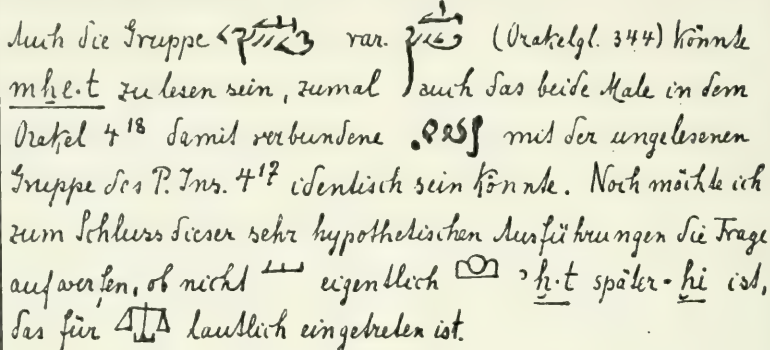 Auch die Gruppe var. (Orakelgl. 344) könnte
mẖe·t zu lesen sein, zumal auch das beide Male in dem
Orakel 4¹⁸ damit verbundene mit der ungelesenen
Gruppe des P. Ins. 4¹⁷ identisch sein könnte. Noch möchte ich
zum Schluss dieser sehr hypothetischen Ausführungen die Frage
aufwerfen, ob nicht eigentlich 𓈌 ʾḫ·t später ḫi ist,
das für lautlich eingetreten ist.